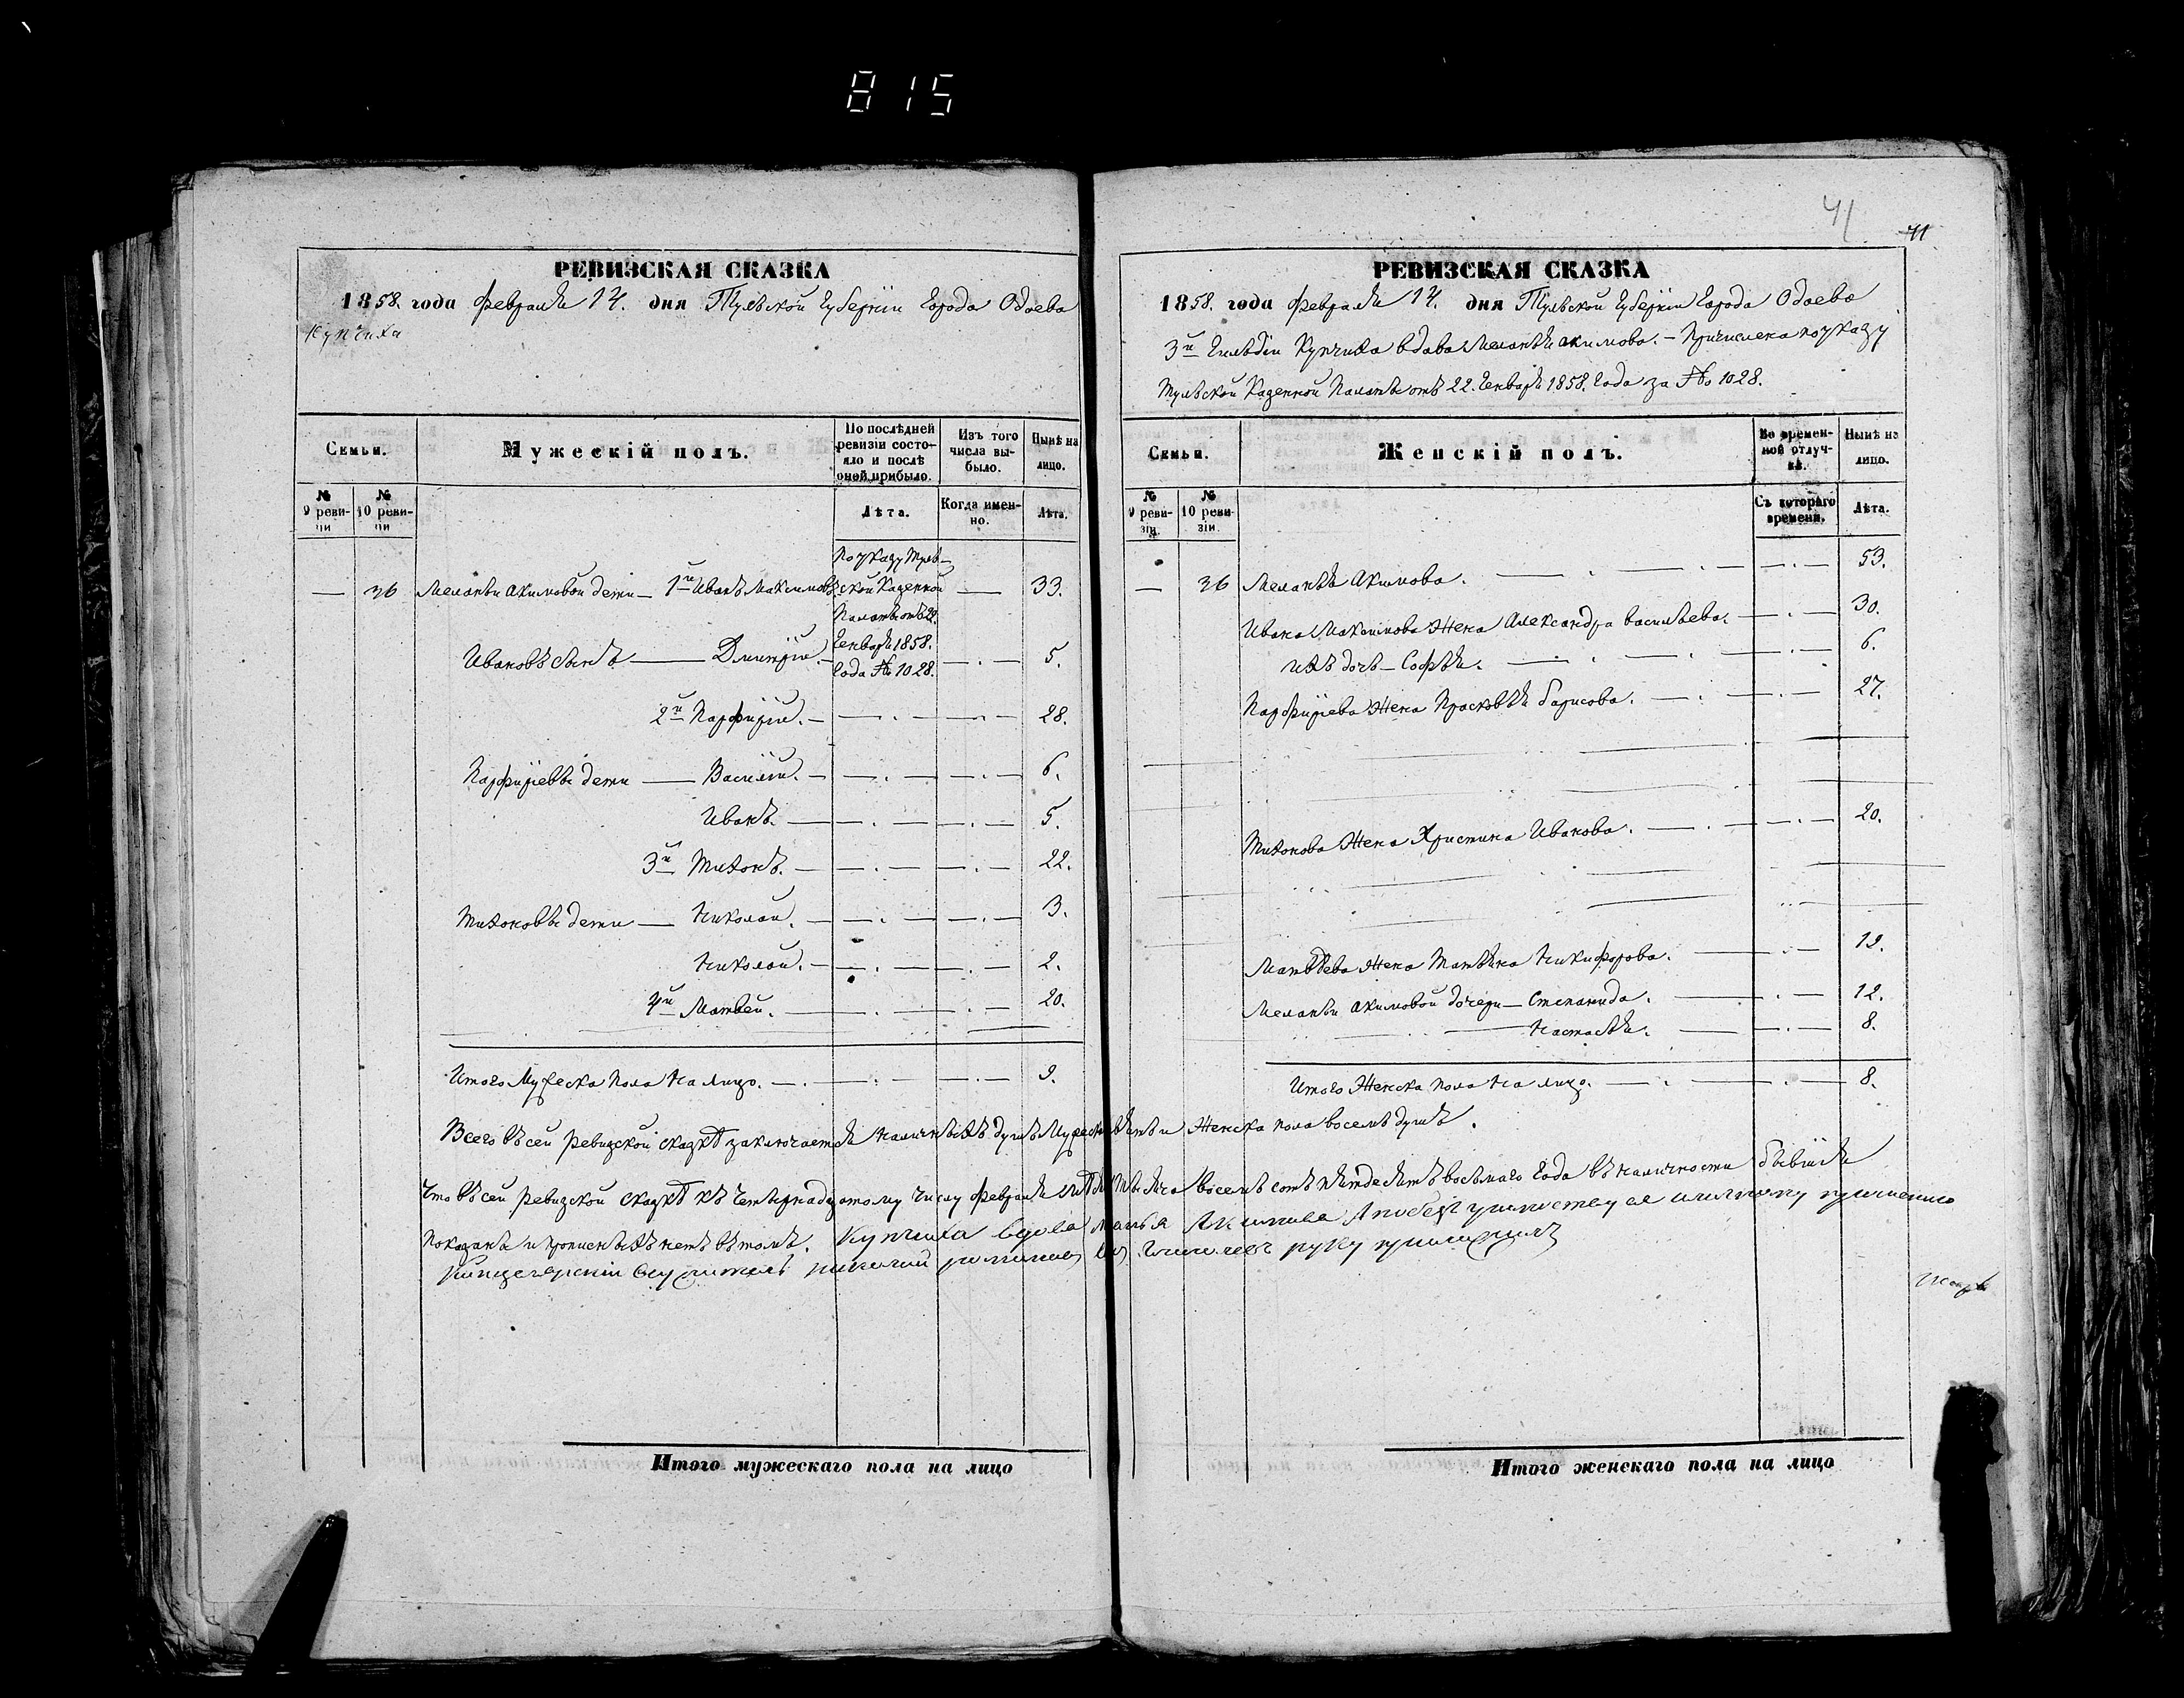 815
РЕВИЗСКАЯ СКАЗКА
1858. года Февраля 14. дня Тульской Губерніи Города Одоева
Купчиха
Семьи.
Мужескій полъ.
По послѣдней ревизіи состо-
яло и послѣ
оной прибыло.
Изъ того
числа вы-
было.
Нынѣ на
лицо.
№
9 реви-
зіи
№
10 реви-
зіи
Лѣта.
Когда имен-
но.
Лѣта.
По указу Туль-
— 36 Меланьи Акимовой дети — 1й Иванъ Максимовъ. ской Казенной — 33.
Палаты отъ 22.
Генваря 1858.
Ивановъ сынъ — Дмитрій. — Года № 1028. — . — 5.
2й Парфирій. — — . — — . — 28.
Парфирьевы дети — Василій. — — . — — . — 6.
Иванъ. — — . — — . — 5.
3й Тихонъ. — — . — — . — 22.
Тихоновы дети — Николай. — — . — — . — 3.
Николай. — — . — — . — 2.
4й Матвей. — — . — — . — 20.
Итого Мужеска пола на лицо. — . — — . — — . — 9.
Итого мужескаго пола на лицо
41
41
РЕВИЗСКАЯ СКАЗКА
1858. года Февраля 14. дня Тульской Губерніи Города Одоева
3й Гильдіи Купчиха вдова Меланья Акимова. — Причислена по указу
Тульской Казенной Палаты отъ 22. Генваря 1858. Года за № 1028.
Семьи.
Женскій полъ.
Во времен-
ной отлуч-
кѣ.
Нынѣ на
лицо.
№
9 реви-
зіи.
№
10 реви-
зіи.
Съ котораго
времени.
Лѣта.
— 36 Меланья Акимова. — . — . — — . — 53.
Ивана Максимова Жена Александра Васильева. — — . — 30.
ихъ дочь — Софья. — . — . — — . — 6.
Парфирьева Жена Прасковья Барисова. — . — — . — 27.
Тихонова Жена Христина Иванова. — . — — . — 20.
Матвѣева Жена Татьяна Никифорова. — — . — 19.
Меланьи Акимовой дочери — Степанида. — — . — 12.
Настасья. — — . — 8.
Итого Женска пола на лицо. — . — — . — 8.
Всего въ сей ревизской сказкѣ заключается наличныхъ душъ Мужеска и Женска пола восемь душъ.
Что въ сей ревизской сказкѣ къ четырнадцатому числу Февраля восемь сотъ пятьдесятъ восьмаго Года въ наличности бывшія
показаны и прописныхъ нетъ въ томъ. Купчиха вдова Акимова
руку приложилъ
Итого женскаго пола на лицо